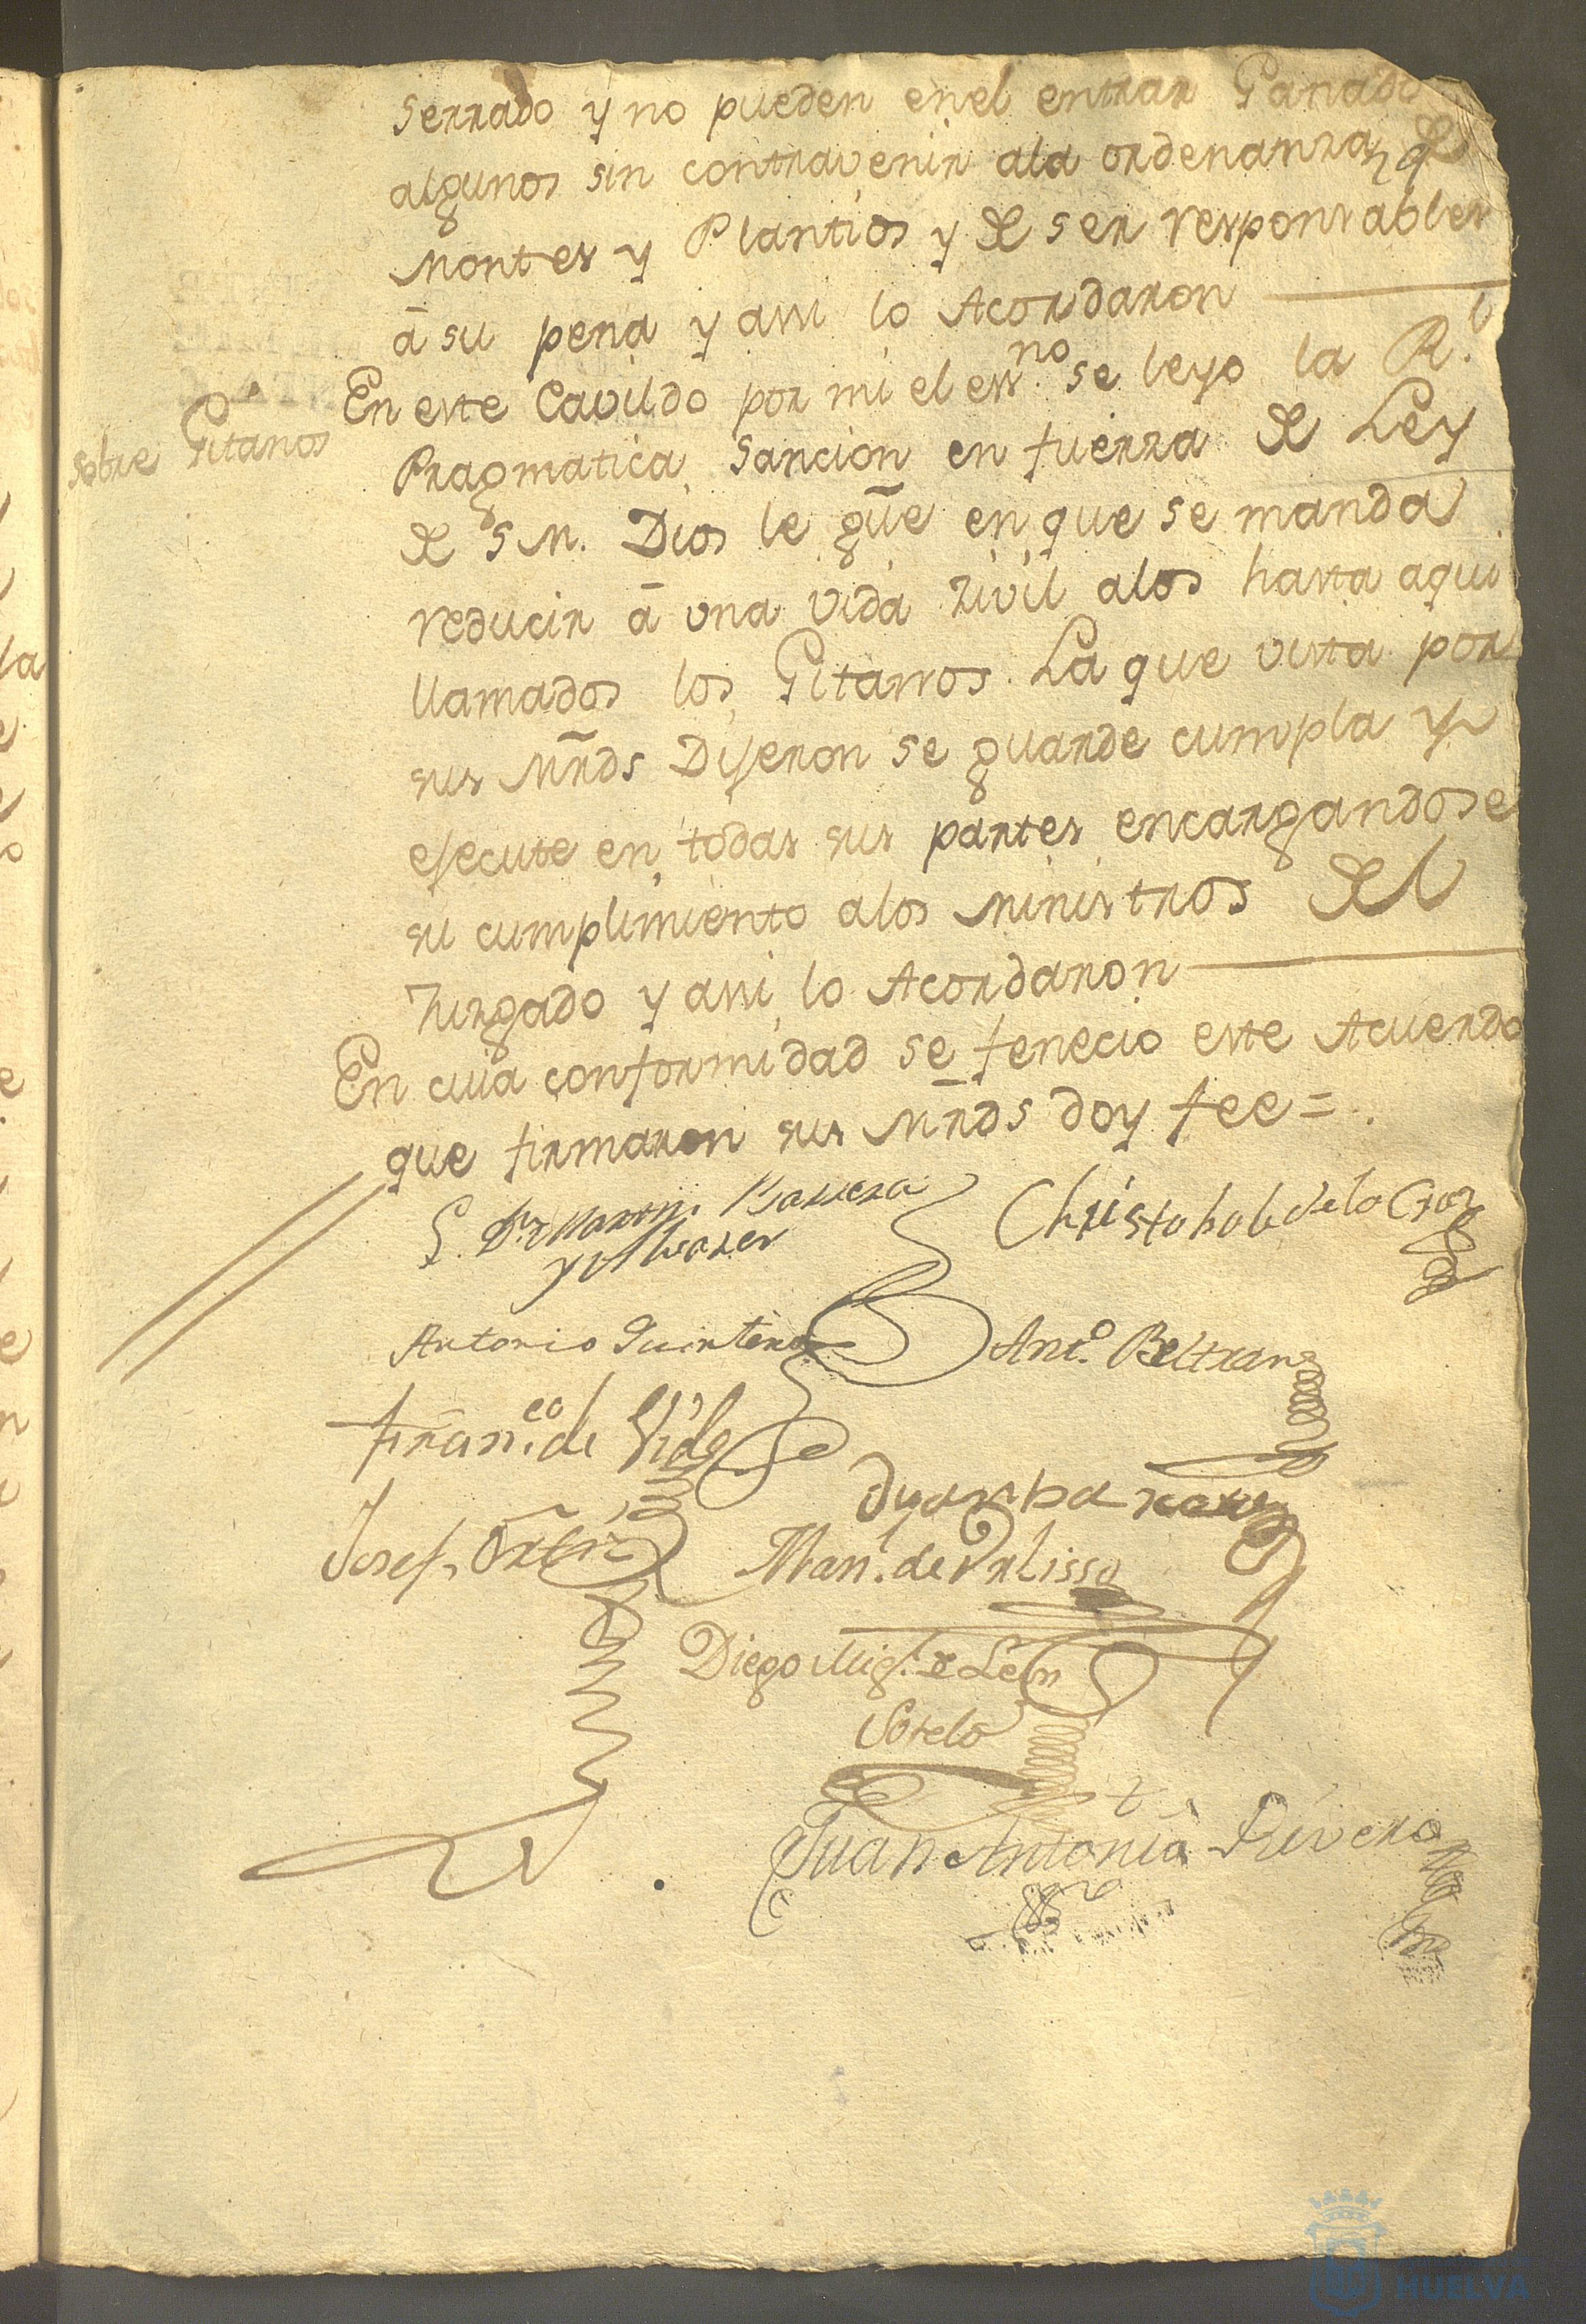 serrado y no pueden enel entrar Ganado
algunos sin contravenir ala ordenanza de
Montes y Plantios y de ser responsables
â su pena y assi lo Acordaron
sobre Gitanos
En este Cavildo por mi el ess.no se leyo la R.l
Pragmatica Sancion en fuerza de Ley
de S M. Dios le gūe en que se manda
reducir â una vida zivil alos hasta aqui
llamados los Gitanos. La que vista por
sus Mr̃ds Dijeron se guarde cumpla y
ejecute en todas sus partes encargandose
su cumplimiento alos Ministros del
Juzgado y assi lo Acordaron
En cuia conformidad se fenecio este Acuerdo
que firmaron sus Mr̃ds doy fee =
Christobal de la Cruz
y Alvarez
Antonio Quintero
Ant.o Beltran
Fran.co de Vides
Josef Ortiz
Man.l de
Diego Mig.l de León
Sotelo
Juan Antonio Rivera
HUELVA